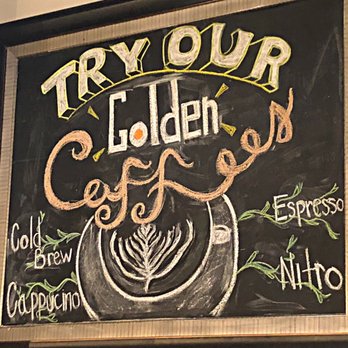 TRY OUR
Golden
Coffees
Cold
Brew
Cappucino
Espresso
Nitro